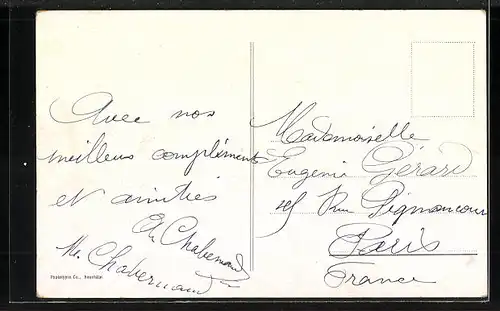 Avec nos
meilleurs compliments
et amitiés
Ch Chabernaud
M. Chabernaud
Mademoiselle
Eugenie Gérard
Rue Lignancour
Paris
France
Phototypie Co., Neuchâtel